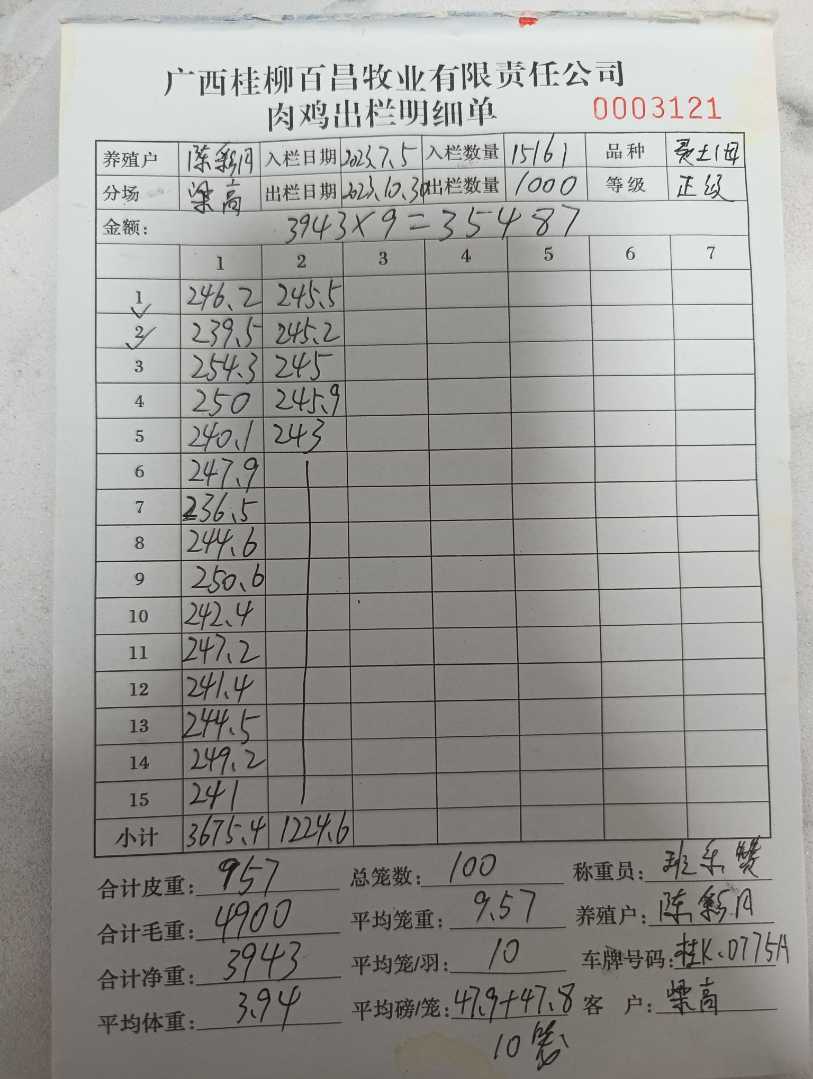 广西桂柳百昌牧业有限责任公司
肉鸡出栏明细单 0003121
养殖户 陈彩月 入栏日期 2023.7.5 入栏数量 15161 品种 土
分场 梁高 出栏日期 2023.10.30 出栏数量 1000 等级 正级
金额: 3943×9=35487
1 2 3 4 5 6 7
1 246.2 245.5
2 239.5 245.2
3 254.3 245
4 250 245.9
5 240.1 243
6 247.9
7 236.5
8 244.6
9 250.6
10 242.4
11 247.2
12 241.4
13 244.5
14 249.2
15 241
小计 3675.4 1224.6
合计皮重: 957 总笼数: 100 称重员: 班乐赞
合计毛重: 4900 平均笼重: 9.57 养殖户: 陈彩月
合计净重: 3943 平均笼/羽: 10 车牌号码: 桂K.0775A
平均体重: 3.94 平均磅/笼: 47.9+47.8 客 户: 梁高
10笼